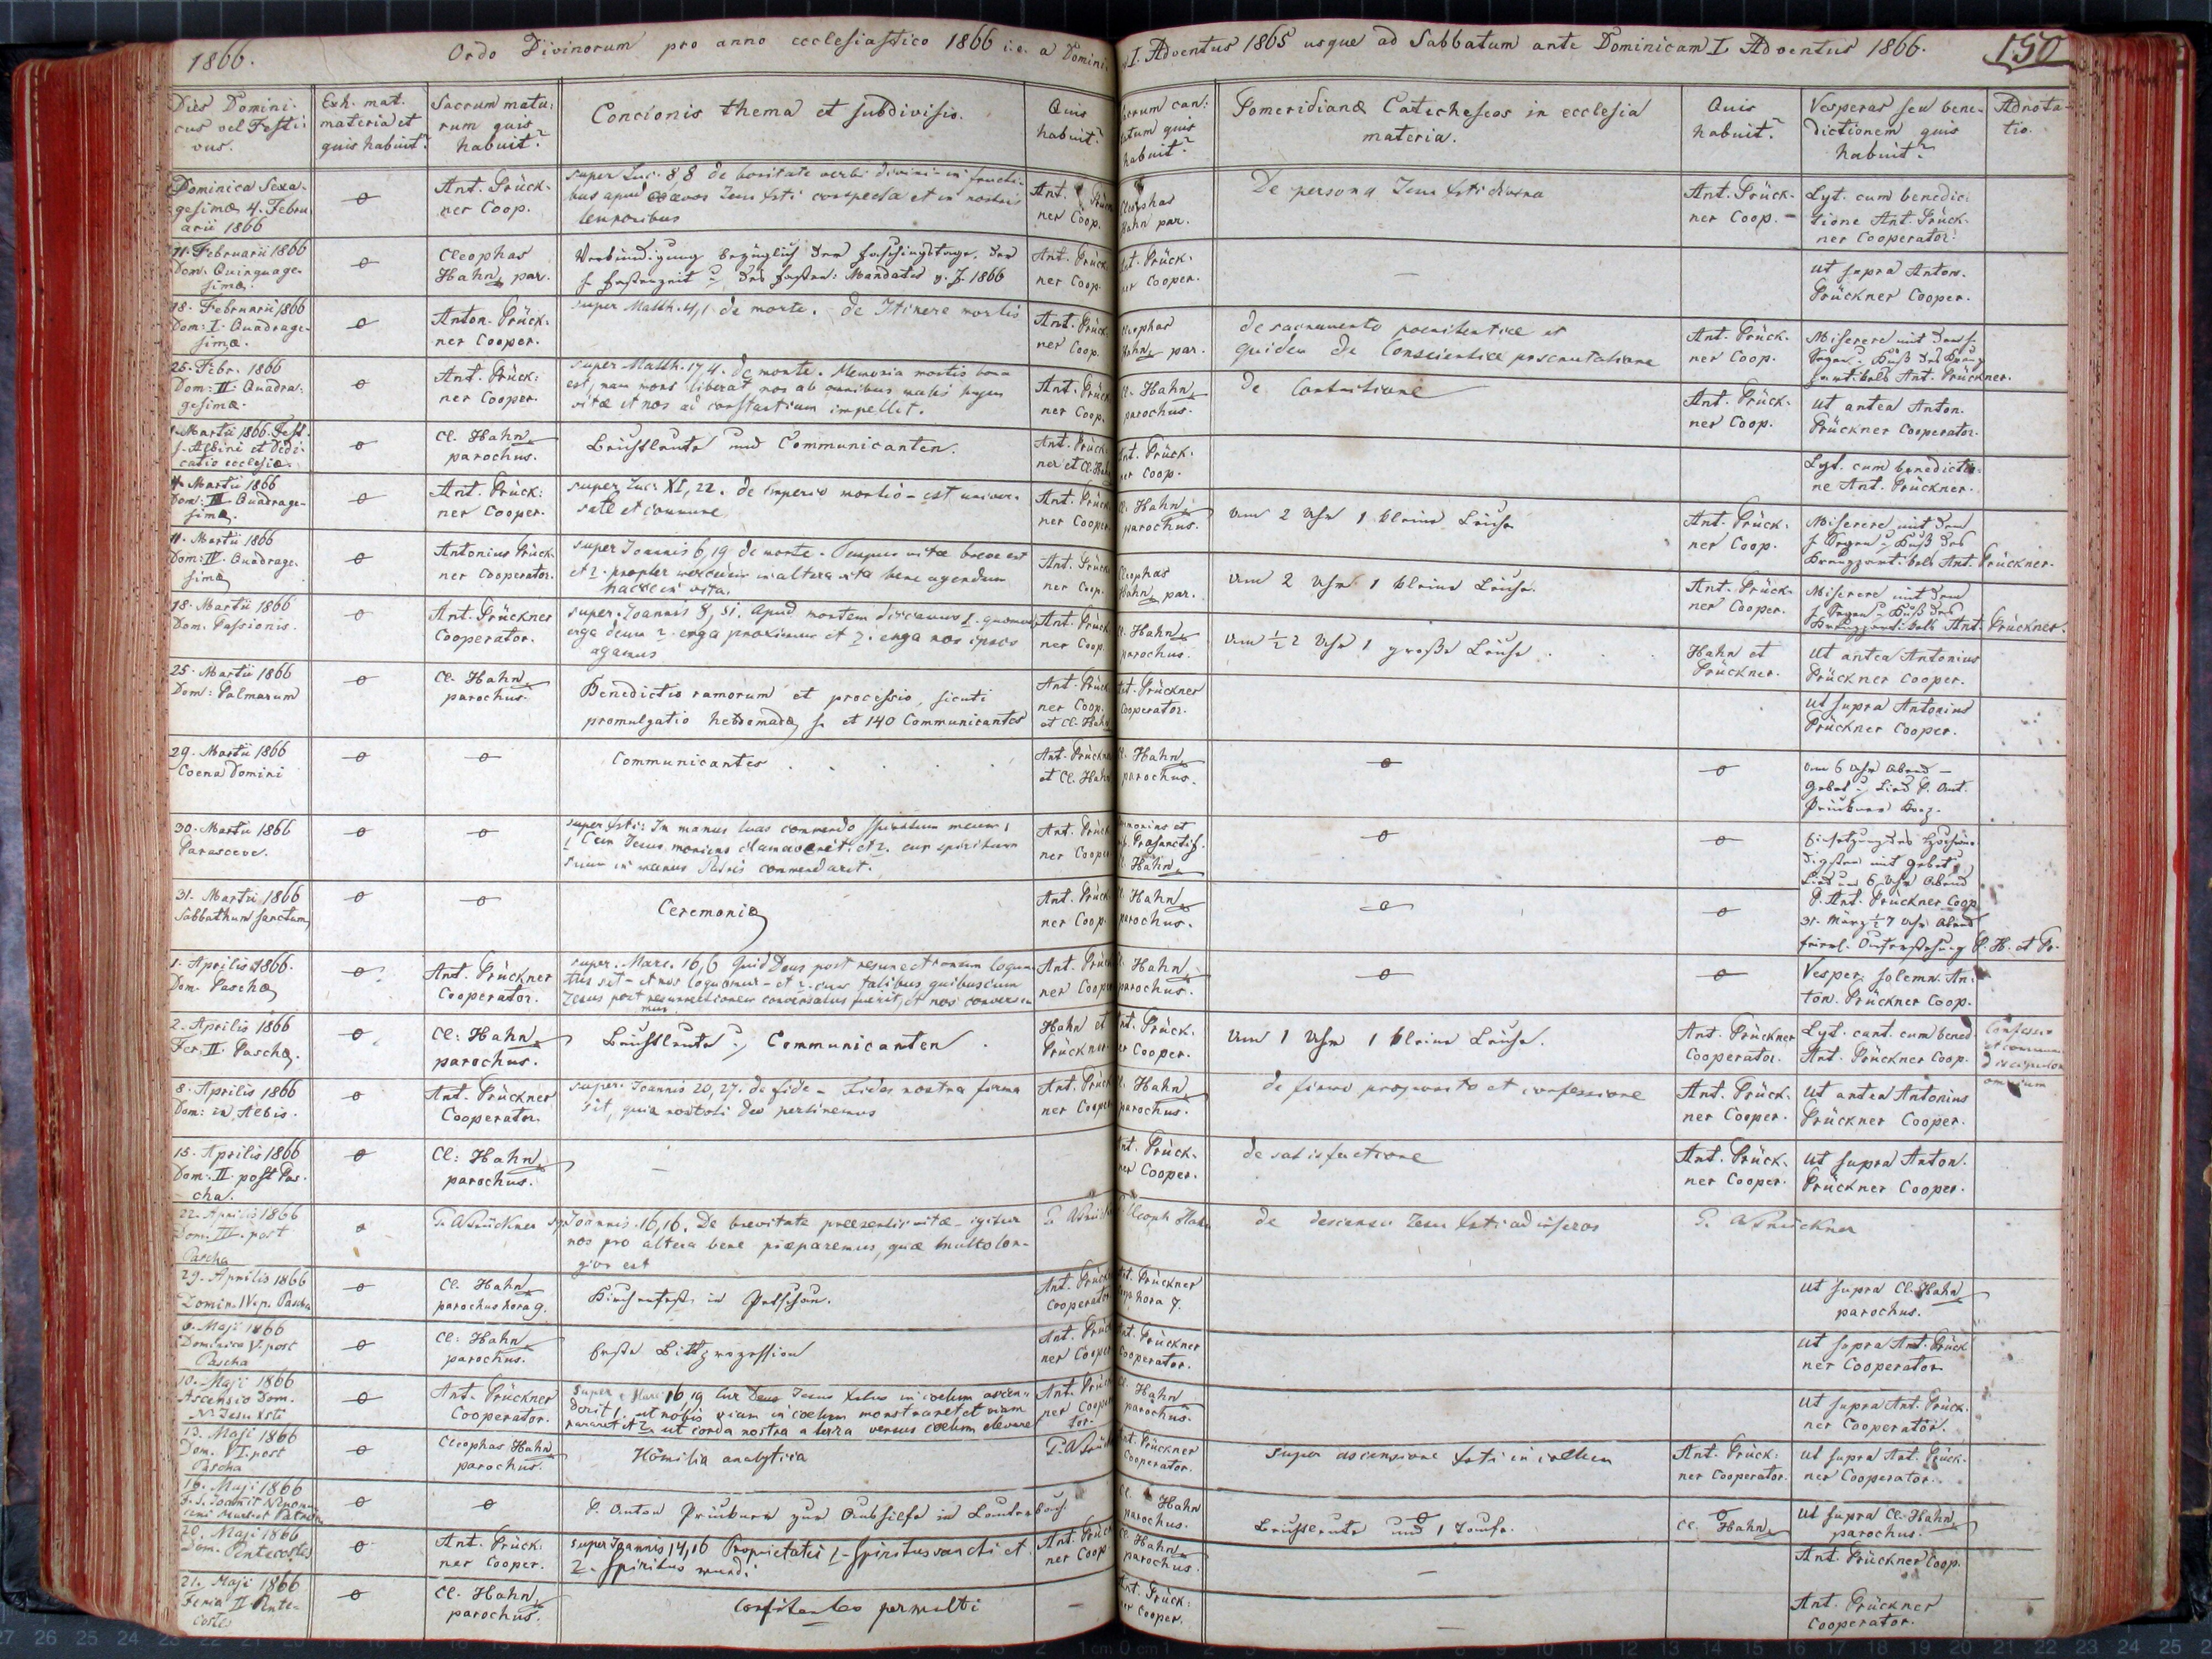 1866.
Ordo Divinorum pro anno ecclesiastico 1866 i.e. a Domini
I. Adventus 1865 usque ad Sabbatum ante Dominicam I. Adventus 1866.
150
Dies Domini-
cus vel Festi-
vus.
Exh. mat.
materia et
quis habuit?
Sacrum matu-
rum quis
habuit?
Concionis thema et subdivisio.
Quis
habuit?
tatum quis
habuit?
Pomeridianæ Catecheseos in ecclesia
materia.
Quis
habuit?
Vesperas seu bene-
dictionem quis
habuit?
Adnota-
tio.
Dominica Sexa-
gesimæ 4. Febru
arii 1866
Ant. Prück-
ner Coop.
super Luc. 8 8 de bonitate verbi divini
temporibus
ner Coop.
Cleophas
Hahn par.
De persona Jesu Xsti divina
Ant. Prück-
ner Coop.
Lyt. cum benedic-
tione Ant. Prück-
ner Cooperator.
11. Februarii 1866
Dom. Quinquage-
simæ.
Cleophas
Hahn par.
Verkündigung bezüglich der Faschingstage, der
h Fastenzeit u. des Fasten-Mandates v. J. 1866
Ant. Prück
ner Coop.
Ant. Prück-
ner Cooper.
ut supra Anton.
Prückner Cooper.
18. Februarii 1866
Dom: I. Quadrage-
simæ.
Anton. Prück-
ner Cooper.
super Matth. 4,1 de morte. - de Itinere mortis
Ant. Prück
ner Coop.
Cleophas
Hahn par.
de sacramento poenitentiæ et
quidem de Conscientiæ perscrutatione
Ant. Prück-
ner Coop.
Miserere mit dem h.
Segen u. Kuß des Kreuz
partikels Ant. Prückner.
25. Febr. 1866
Dom: II. Quadra-
gesimæ.
Ant. Prück-
ner Cooper.
super Matth. 17,4. de morte. Memoria mortis bona
est, nam mors liberat nos ab omnibus malis hujus
vitæ et nos ad constantiam impellit.
Ant. Prück
ner Coop.
Cl. Hahn
parochus.
de Contritione
Ant. Prück-
ner Coop.
ut antea Anton.
Prückner Cooperator.
1. Martii 1866. Fest.
s. Albini et Dedi-
catio ecclesiæ.
Cl. Hahn
parochus.
Beichtleute und Communicanten.
Ant. Prück
ner et Cl. Hahn
Ant. Prück-
ner Coop.
Lyt. cum benedictio-
ne Ant. Prückner.
4. Martii 1866
Dom: III. Quadrage-
simæ.
Ant. Prück-
ner Cooper.
super Luc. XI, 22. de Imperio mortis - est univer-
sale et commune
Ant. Prück
ner Cooper
Cl. Hahn
parochus.
um 2 Uhr 1 kleine Leiche
Ant. Prück-
ner Coop.
Miserere mit dem
h Segen u. Kuß des
Kreuzpartikels Ant. Prückner.
11. Martii 1866
Dom: IV. Quadrage-
simæ
Antonius Prück
ner Cooperator.
super Joannis 6,19 de morte. Tempus vitæ breve est
et 2. propter mercedem in altera vita bene agendum
hacce in vita.
Ant. Prück
ner Coop.
Cleophas
Hahn par.
um 2 Uhr 1 kleine Leiche.
Ant. Prück-
ner Cooper.
Miserere mit dem
h Segen u. Kuß des
Kreuzpartikels Ant. Prückner.
18. Martii 1866
Dom. Passionis.
Ant. Prückner
Cooperator.
super. Joannis 8, 51. apud mortem discamus 1. quomodo
erga deum 2. erga proximum et 3. erga nos ipsos
agamus
Ant. Prück
ner Coop.
Cl. Hahn
parochus.
um ½2 Uhr 1 große Leiche
Hahn et
Prückner.
ut antea Antonius
Prückner Cooper.
25. Martii 1866
Dom: Palmarum
Cl. Hahn
parochus.
Benedictio ramorum et processio, sicuti
promulgatio hebdomadæ s. et 140 Communicantes
Ant. Prück
ner Coop.
et Cl. Hahn
Ant. Prückner
Cooperator.
ut supra Antonius
Prückner Cooper.
29. Martii 1866
Coena Domini
Communicantes
Ant. Prückner
et Cl. Hahn
Cl. Hahn
parochus.
um 6 Uhr Abend-
gebet u. Lied P. Ant.
Prückner Koop.
30. Martii 1866
Parasceve.
super Xsti: In manus tuas commendo spiritum meum,
1. Cur Jesus moriens clamaverit. et 2. cur spiritum
suum in manus Patris commendarit.
Ant. Prück
ner Cooper
Præsanctif.
Cl. Hahn
digsten mit Gebet
Lied um 6 Uhr Abend
P. Ant. Prückner Coop
31. Martii 1866
Sabbathum sanctum
Ceremoniæ
Ant. Prück
ner Coop.
Cl. Hahn
parochus.
31. März ½7 Uhr Abend
feierl. Auferstehung P. H. et Pr.
1. Aprilis 1866.
Dom. Paschæ
Ant. Prückner
Cooperator.
super. Marc. 16,6 Quid Deus post resurrectionem locu
tus sit - et nos loquamur - et 2. cum talibus, quibuscum
Jesus post resurrectionem conversatus fuerit, et nos converse
mur.
Ant. Prück
ner Cooper
Cl. Hahn
parochus.
Vesper. solemn. An-
ton. Prückner Coop.
2. Aprilis 1866
Fer. II. Paschæ.
Cl: Hahn
parochus.
Beichtleute u. Communicanten
Hahn et
Prückner
Ant. Prück-
ner Cooper.
um 1 Uhr 1 kleine Leiche.
Ant. Prückner
Cooperator.
Lyt. cant. cum bened
Ant. Prückner Coop.
omnium
8. Aprilis 1866
Dom: in Albis.
Ant. Prückner
Cooperator.
super. Joannis 20, 27. de fide - Fides nostra firma
sit, quia
Ant. Prück
ner Cooper
Cl. Hahn
parochus.
de firmo proposito et confessione
Ant. Prück-
ner Cooper.
ut antea Antonius
Prückner Cooper.
15. Aprilis 1866
Dom: II. post Pas-
cha.
Cl: Hahn
parochus.
Ant. Prück-
ner Cooper.
de satisfactione
Ant. Prück-
ner Cooper.
ut supra Anton.
Prückner Cooper.
22. Aprilis 1866
Dom. III. post
Pascha
P. A Prückner
Joannis. 16,16. De brevitate præsentis vitæ - igitur
nos pro altera bene præparemus, quæ multo lon-
gior est
P. A Prück
Cleoph Hahn
de descensu Jesu Xsti ad inferos
P. A Prückner
29. Aprilis 1866
Domin. IV. p. Pascha
Cl. Hahn
parochus hora 9.
Kirchenfest in Petschau.
Ant. Prück
Cooperator
Ant. Prückner
hora 7.
ut supra Cl. Hahn
parochus.
6. Maji 1866
Dominica V. post
Pascha
Cl: Hahn
parochus.
Erste Bittprozession
Ant. Prück
ner Cooper
Ant. Prückner
Cooperator.
ut supra Ant. Prück
ner Cooperator
10. Maji 1866
Ascensio Dom.
Ni Jesu Xsti
Ant. Prückner
Cooperator.
super Marc 16 19 Cur Jesus Xstus in coelum ascen-
derit 1. ut nobis viam in coelum monstraret et viam
pararet et 2. ut corda nostra a terra versus coelum elevaret
Ant. Prück
ner Coopera
tor.
Cl. Hahn
parochus.
ut supra Ant. Prück-
ner Cooperator.
13. Maji 1866
Dom. VI. post
Pascha
Cleophas Hahn
parochus.
Homilia analytica
P. A Prück
Ant. Prückner
Cooperator.
Super ascensione Xsti in coelum
Ant. Prück-
ner Cooperator.
ut supra Ant. Prück-
ner Cooperator.
16. Maji 1866
P. Anton Prückner zur Aushilfe in
Cl. Hahn
parochus.
ut supra Cl. Hahn
parochus.
20. Maji 1866
Dom. Pentecostes
Ant. Prück-
ner Cooper.
super Joannis 14,16 Proprietatis 1. Spiritus sancti et
2. Spiritus mundi
Ant. Prück
ner Coop.
Cl. Hahn
parochus.
Beichtleute und 1 Taufe.
Cl. Hahn
Ant. Prückner Coop.
21. Maji 1866
Feria II. Pente-
costes
Cl. Hahn
parochus.
Confitentes permulti
Ant. Prück-
ner Cooper.
Ant. Prückner
Cooperator.